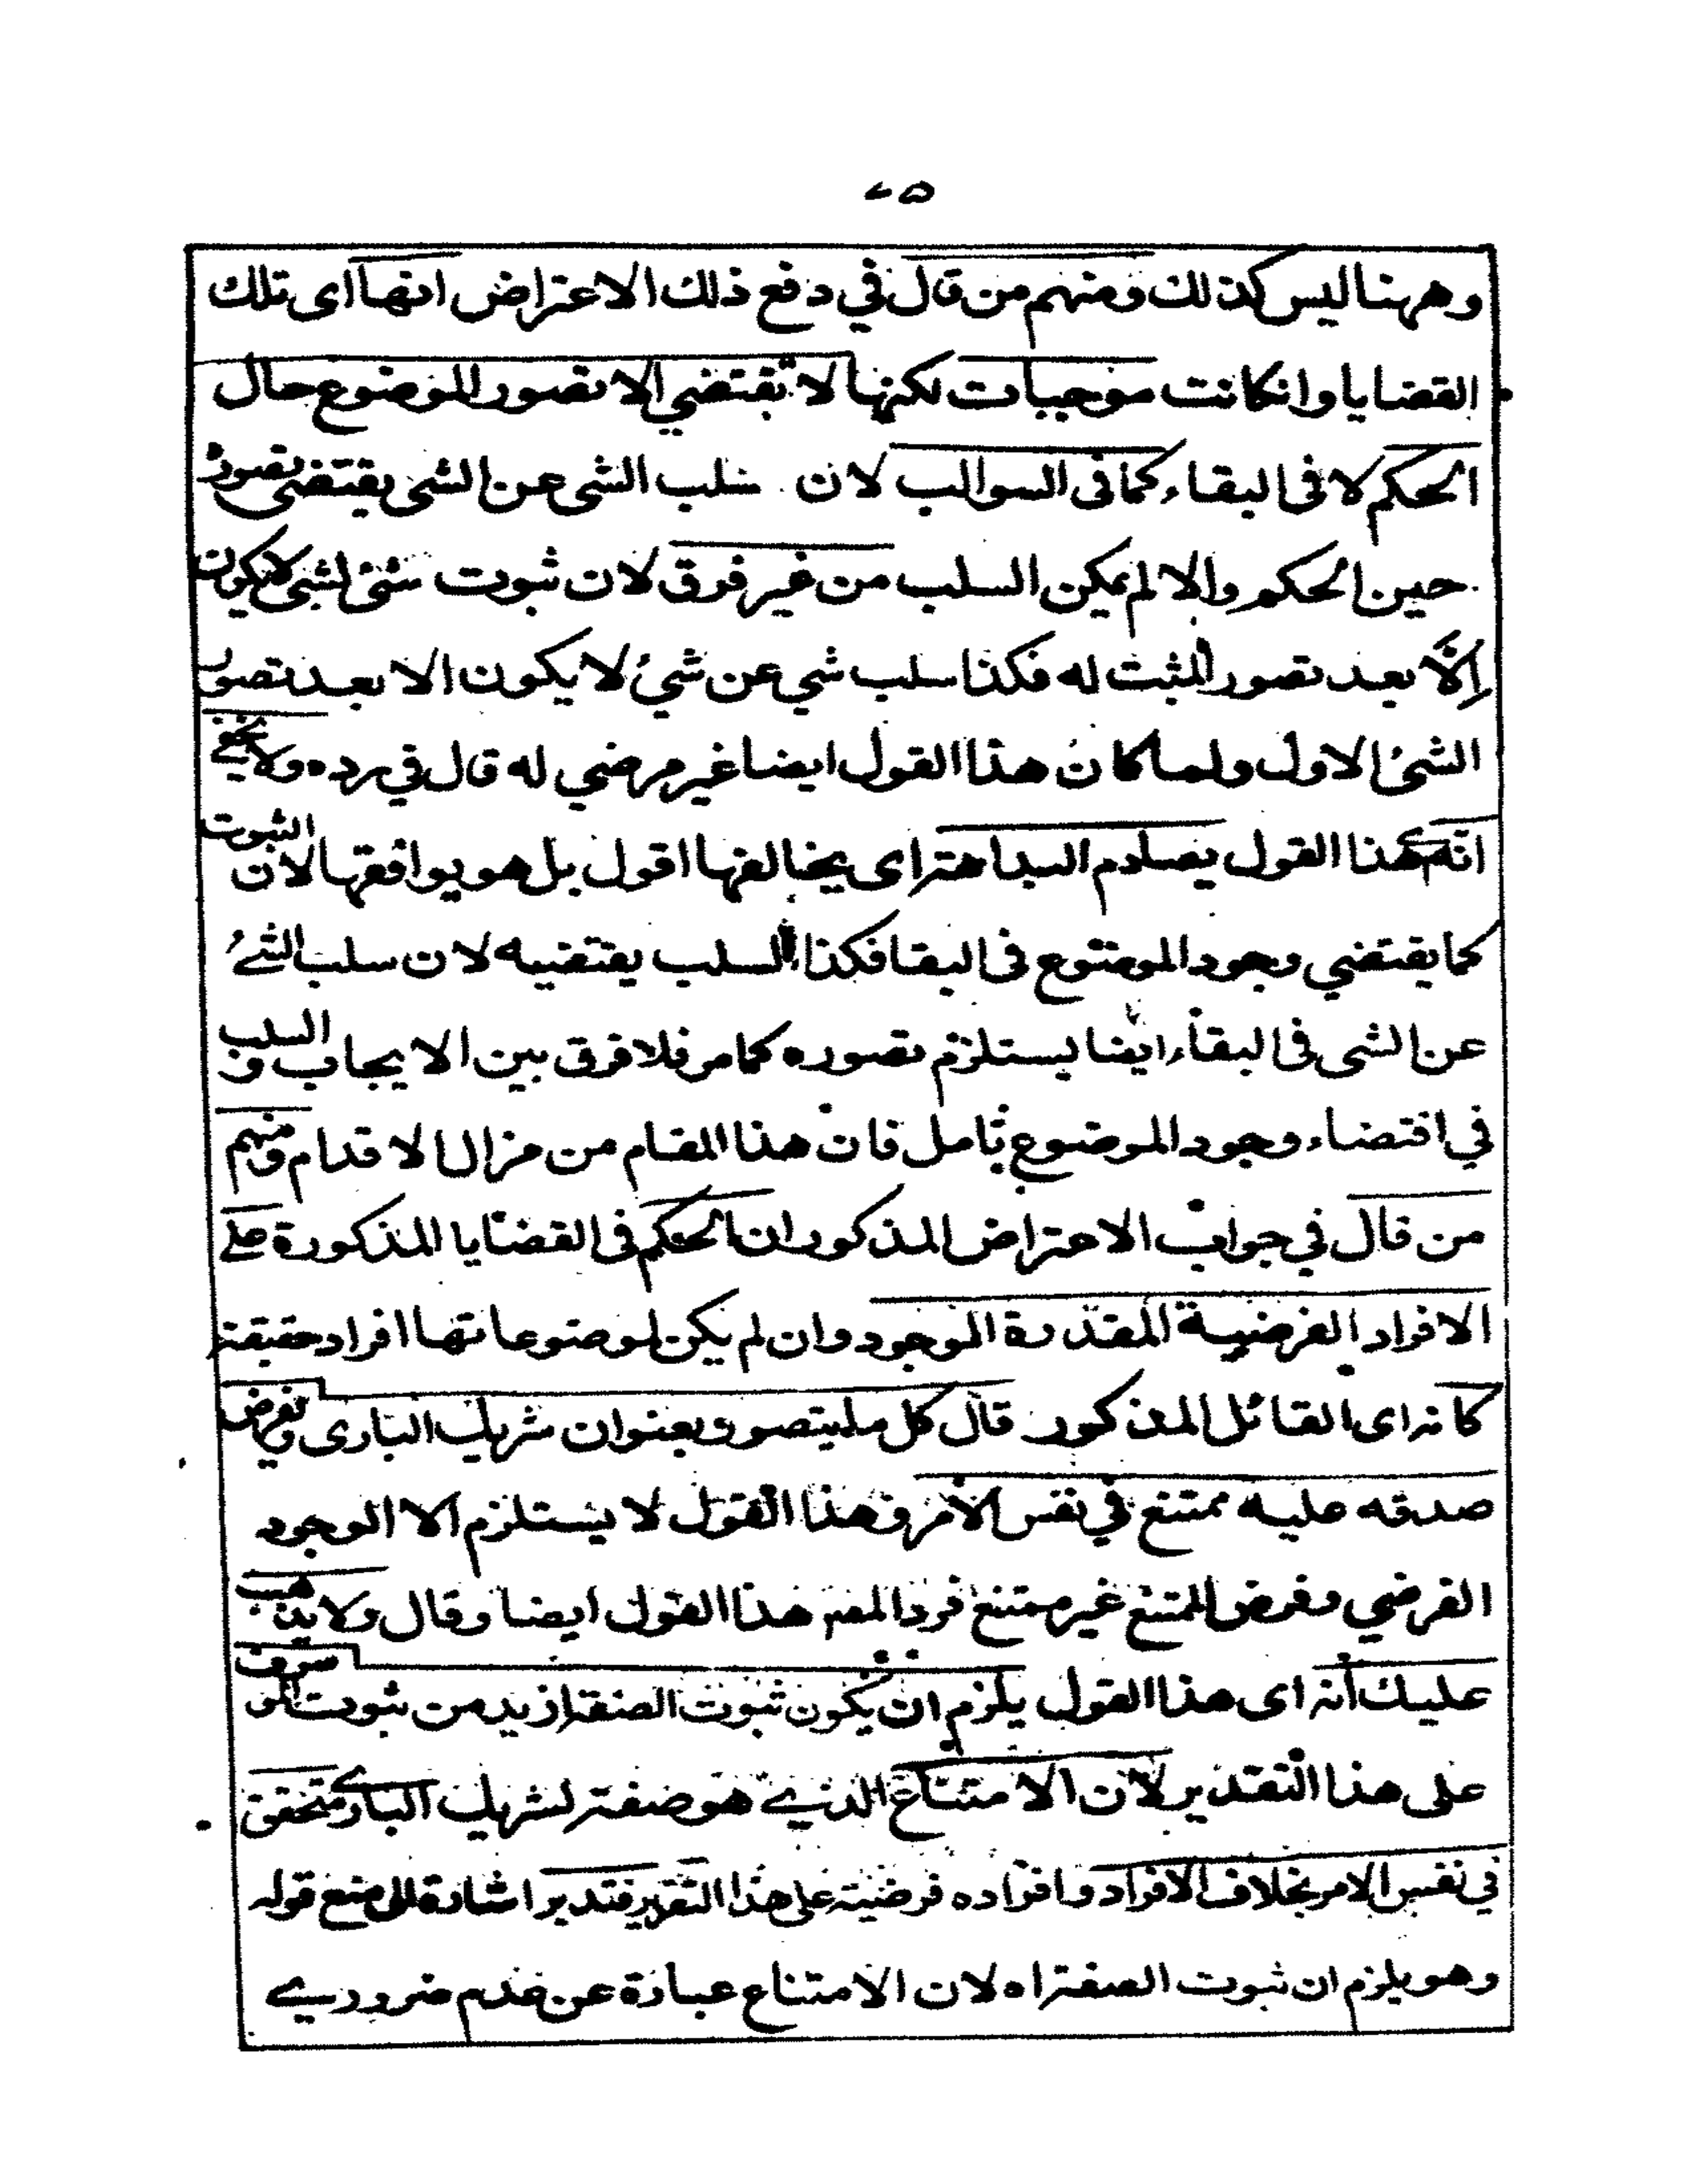 وههنا ليس كذلك ومنهم من قال في دفع ذلك الاعتراض انها اى تلك
القضايا وانكانت موجبات لكنها لا تقتضي الا تصور الموضوع حال
الحكم لا فى البقاء كما فى السوالب لان سلب الشى عن الشى يقتضى تصوره
حين الحكم والا لم يمكن السلب من غير فرق لان ثبوت شئ لشئ لا يكون
إلّا بعد تصور المثبت له فكذا سلب شي عن شئ لا يكون الا بعد تصور
الشئ الاول ولما كان هذا القول ايضا غير مرضي له قال في رده ولا يخفے
انه هذا القول يصادم البداهة اى يخالفها اقول بل هو يوافقها لان الثبوت
كما يقتضي وجود الموضوع فى البقا فكذا السلب يقتضيه لان سلب الشئ
عن الشى فى البقاء ايضا يستلزم تصوره كما مر فلا فرق بين الايجاب و السلب
في اقتضاء وجود الموضوع تامل فان هذا المقام من مزال الاقدام ومنهم
من قال في جواب الاعتراض المذكور ان الحكم فى القضايا المذكورة علے
الافراد الفرضية المقدرة الموجود وان لم يكن لموضوعاتها افراد حقيقة
كانه اى القائل المذكور قال كل ما يتصور بعنوان شريك البارى ويفرض
صدقه عليه ممتنع في نفس الأمر وهذا القول لا يستلزم الا الوجود
الفرضي وفرض الممتنع غير ممتنع فرد المصـ هذا القول ايضا وقال ولا يذهب
عليك أنه اى هذا القول يلزم ان يكون ثبوت الصفة ازيد من ثبوت الموصوف
على هذا التقدير لان الامتناع الذي هو صفة لشريك البارے متحقق
في نفس الامر بخلاف الافراد وافراده فرضية على هذا التقرير فتدبر اشارة الى منع قوله
وهو يلزم ان ثبوت الصفة اه لان الامتناع عبارة عن عدم ضروري